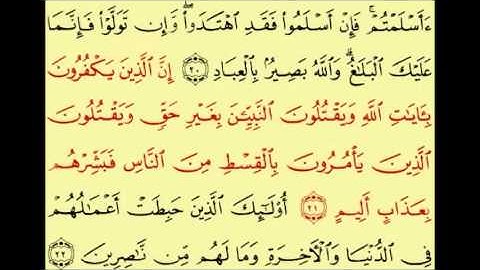 ءَأَسۡلَمۡتُمۡۚ فَإِنۡ أَسۡلَمُواْ فَقَدِ ٱهۡتَدَواْۖ وَّإِن تَوَلَّوۡاْ فَإِنَّمَا
عَلَيۡكَ ٱلۡبَلَٰغُۗ وَٱللَّهُ بَصِيرُۢ بِٱلۡعِبَادِ ٢٠ إِنَّ ٱلَّذِينَ يَكۡفُرُونَ
بِـَٔايَٰتِ ٱللَّهِ وَيَقۡتُلُونَ ٱلنَّبِيِّـۧنَ بِغَيۡرِ حَقّٖ وَيَقۡتُلُونَ
ٱلَّذِينَ يَأۡمُرُونَ بِٱلۡقِسۡطِ مِنَ ٱلنَّاسِ فَبَشِّرۡهُم
بِعَذَابٍ أَلِيمٍ ٢١ أُوْلَٰٓئِكَ ٱلَّذِينَ حَبِطَتۡ أَعۡمَٰلُهُمۡ
فِي ٱلدُّنۡيَا وَٱلۡأٓخِرَةِ وَمَا لَهُم مِّن نَّٰصِرِينَ ٢٢